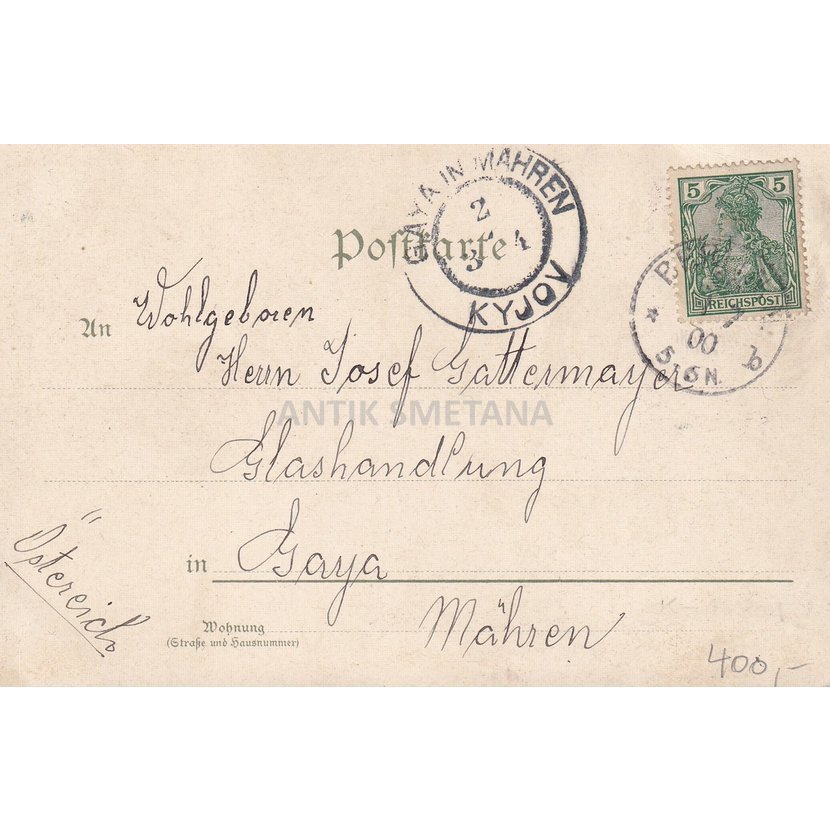 GAYA IN MÄHREN
2
3
KYJOV
5
REICHSPOST
00
5-6N.
b
Postkarte
An Wohlgeboren
Herrn Josef Gattermayer
ANTIK SMETANA
Glashandlung
in Gaya
Östereich
Mähren
Wohnung
(Straße und Hausnummer)
400,-